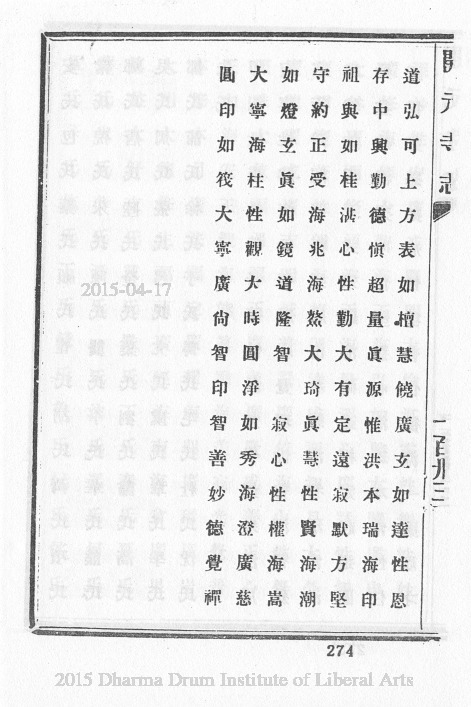 開元寺志
道弘可上方表如檀慧饒廣玄如達性恩
存中興勤德愼超量眞源惟洪本瑞海印
祖與如桂洪心性勤大有定遠寂默方堅
守約正受海兆海大琦眞慧性賢海潮
如燈玄眞如鏡道隆智 寂心性權海嵩
大寧海柱性觀大時圓淨如秀海澄廣慈
圓印如筏大寧廣尙智印智善妙德覺禪
一百九三
2015-04-17
274
2015 Dharma Drum Institute of Liberal Arts